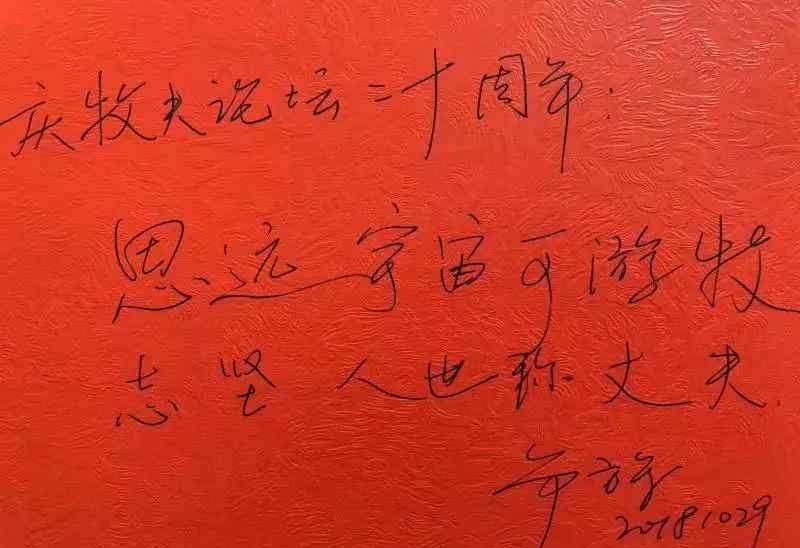 庆牧夫论坛二十周年:
思远宇宙可游牧
志坚人也称丈夫.
20181029